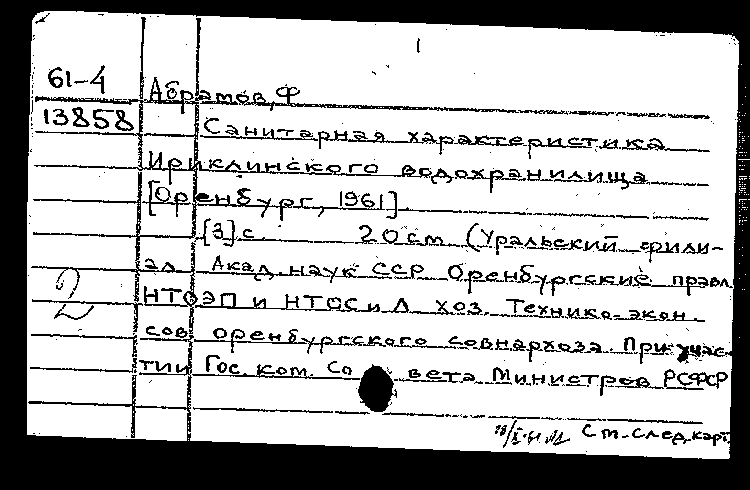 1
61-4
Абрамов, Ф
13858
Санитарная характеристика
Ириклинского водохранилища
[Оренбург, 1961].
[3] с. 20 см (Уральский фили-
ал Акад. наук СССР Оренбургские правл.
2
НТОЭП и НТОС и Л хоз. Технико-экон.
сов. оренбургского совнархоза. При учас-
тии Гос. ком. Совета Министров РСФСР
См. след. карт.